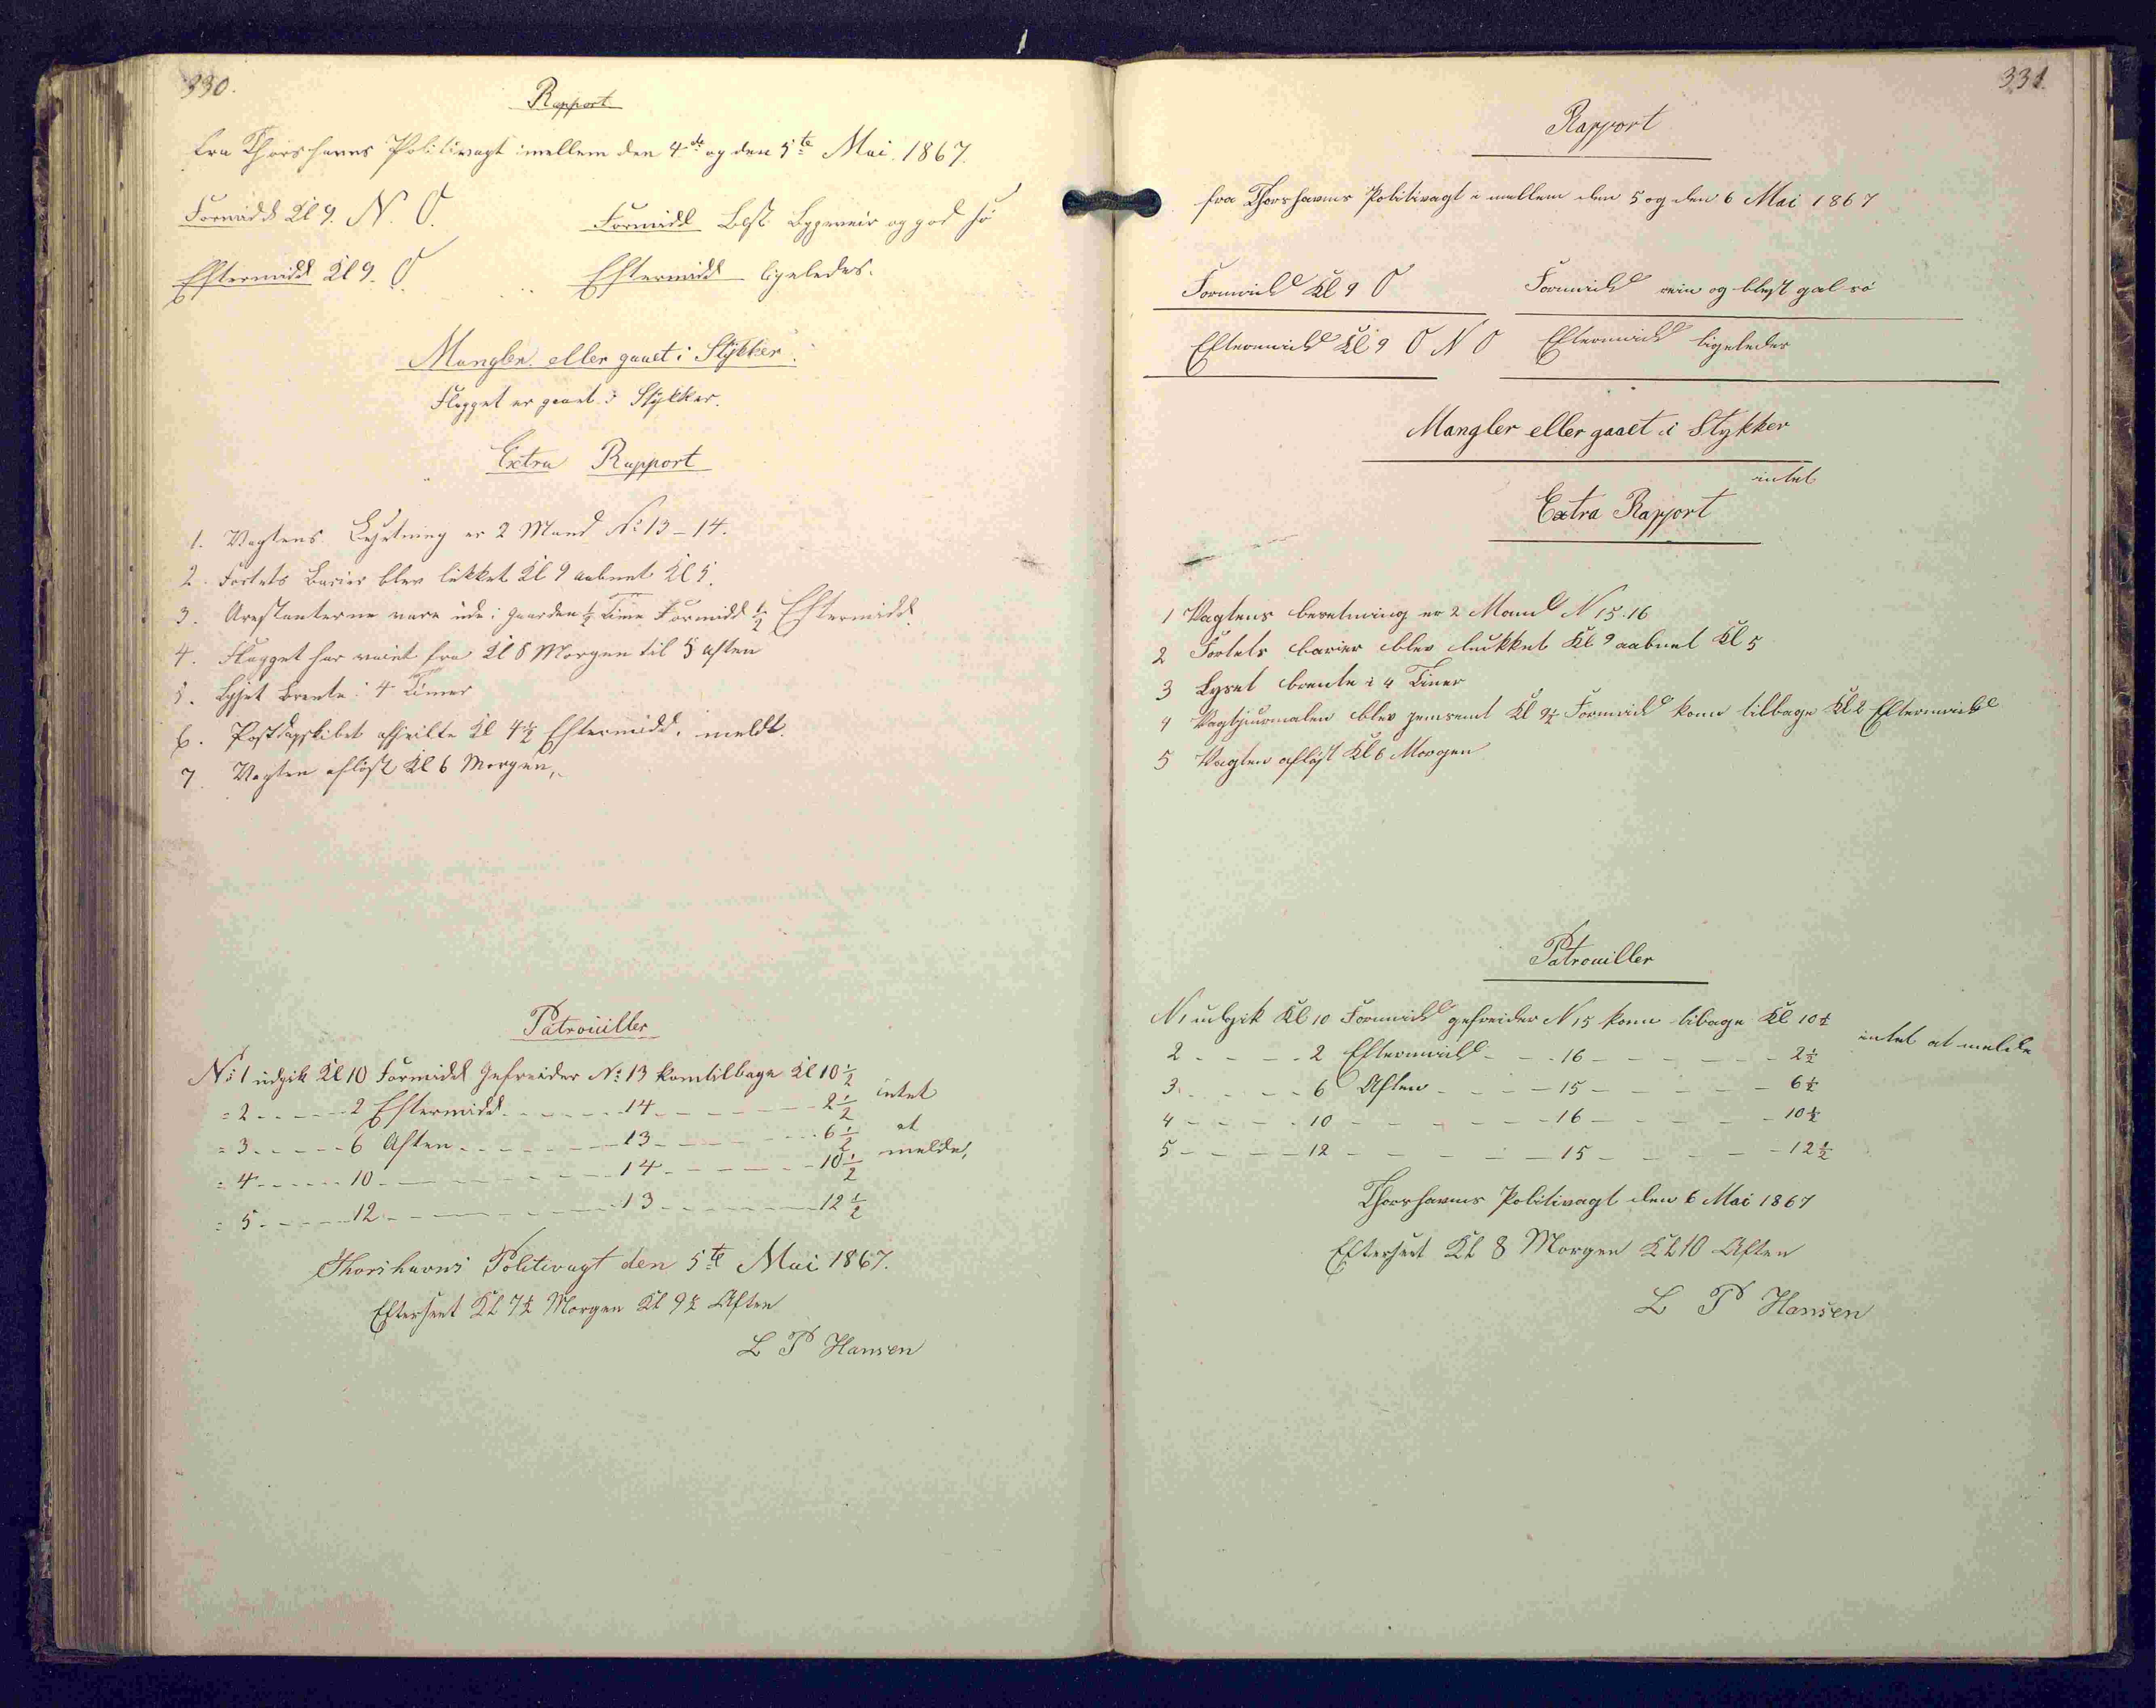 330.
Rapport
fra Thorshavns Politivagt imellem den 4de og den 5te Mai 1867.
Formidd Kl 9. N. O. Formidd Blest Bygeveir og god sö
Eftermidd Kl 9. O. Eftermidd ligeledes.
Mangler eller gaaet i Stykker.
Flagget er gaaet i Stykker.
Extra Rapport
1. Vagtens Besetning er 2 Mand No 13 - 14.
2. Fortets Barier blev lukket Kl 9 aabnet Kl 5.
3. Arestanterne vare ude i Gaarden ½ Time Formidd ½ Eftermidd.
4. Flagget har vaiet fra Kl 8 Morgen til 5 Aften
5. Lyset brente i 4 Timer
6. Postdapskibet afseilte Kl 4½ Eftermidd. meldt.
7. Vagten aflöst Kl 6 Morgen.
Patrouiller
No 1 udgik Kl 10 Formidd Gefreider No 13 kom tilbage Kl 10½ intet
= 2 - - - - - 2 Eftermidd. - - - - - 14 - - - - - 2½ at
= 3 - - - - - 6 Aften - - - - - 13 - - - - - 6½ melde,
= 4 - - - - - 10 - - - - - 14 - - - - - 10½
= 5 - - - - - 12 - - - - - 13 - - - - - 12½
Thorshavns Politivagt den 5te Mai 1867.
Efterseet Kl 7½ Morgen Kl 9½ Aften
L P Hansen
331.
Rapport
fra Thorshavns Politivagt i mellem den 5 og den 6 Mai 1867
Formidd Kl 9 O Formidd rein og blest gal sö
Eftermidd Kl 9 O N O Eftermidd ligeledes
Mangler eller gaaet i Stykker
intet
Extra Rapport
1 Vagtens besetning er 2 Mand N 15.16
2 Fortets barier blev lukket Kl 9 aabnet Kl 5
3 Lyset brente i 4 Timer
4 Vagtjurnalen blev Kl 9½ Formidd kom tilbage Kl 2 Eftermidd
5 Vagten aflöst Kl 6 Morgen
Patrouiller
N 1 udgik Kl 10 Formidd gefreider N 15 kom tibage Kl 10½ intet at melde
2 - - - - 2 Eftermidd - - - 16 - - - - - 2½
3 - - - - 6 Aften - - - 15 - - - - - 6½
4 - - - - 10 - - - - - 16 - - - - - 10½
5 - - - - 12 - - - - - 15 - - - - - 12½
Thorshavns Politivagt den 6 Mai 1867
Efterseet Kl 8 Morgen Kl 10 Aften
L P Hansen